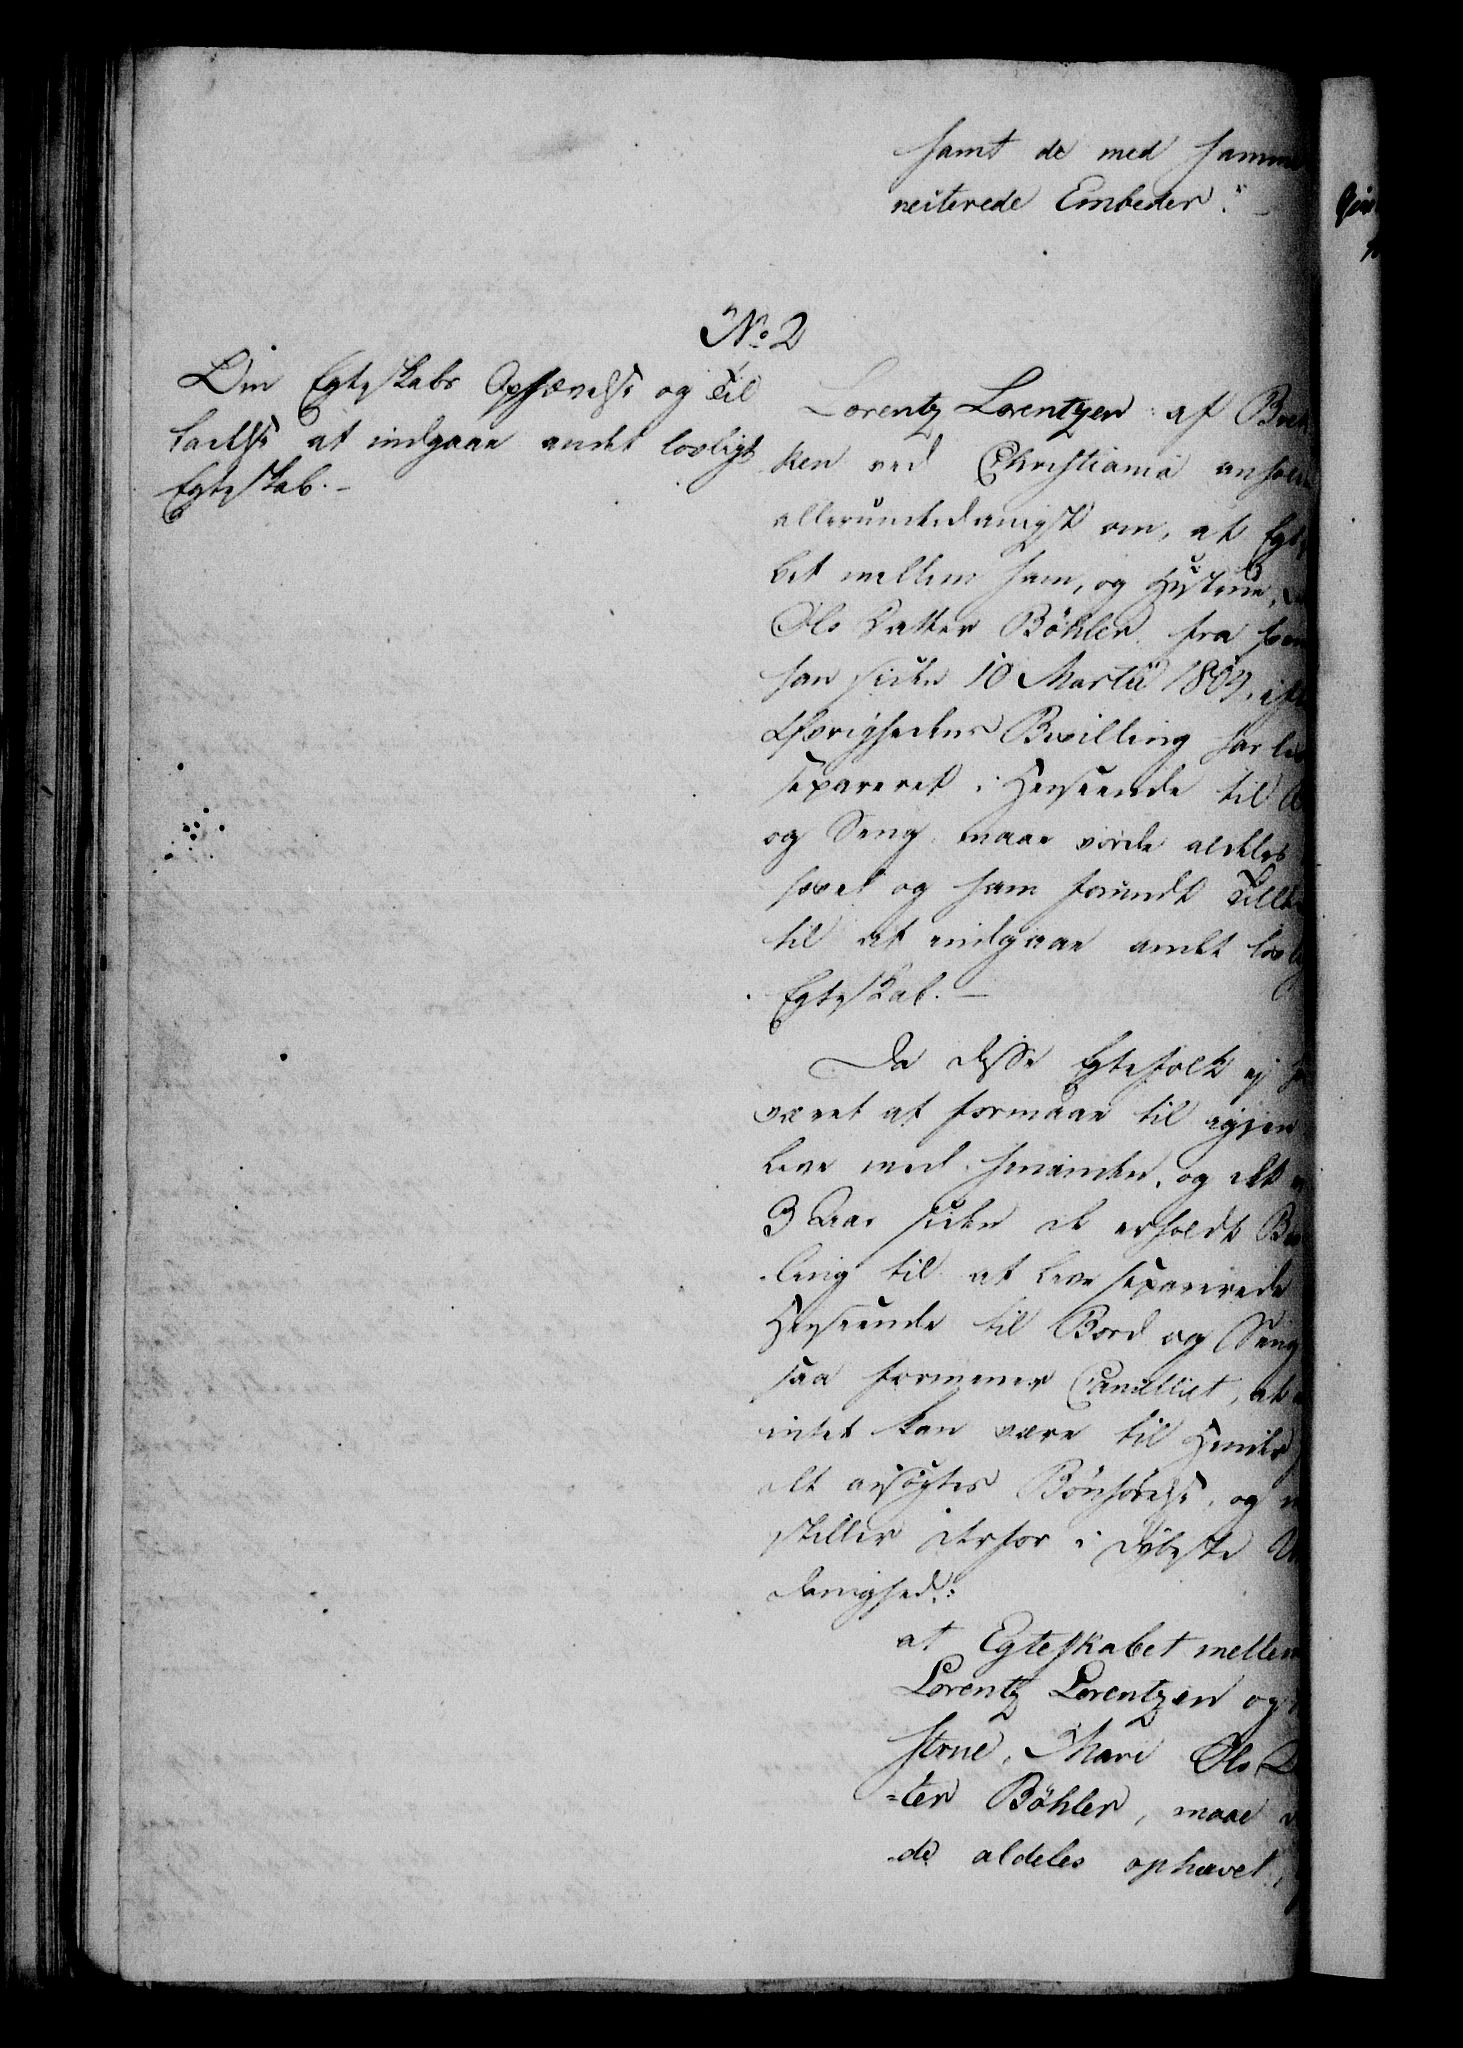 samt de med samme
neiterede Embeder."
No 2
Om Egteskabs Ophævelse og Til
ladelse at indgaae andet lovligt
Egteskab.
Lorentz Lorentzen af
ken ved Christiania anholder
allerunderdanigst om, at Egteska
bet mellem ham, og Hustrue,
Ols Datter Böhler, fra hvem
han siden 10 Martii 1809, efter
Øvrighedens Bevilling har levet
separeret i Henseende til Bord
og Seng, maae vorde aldeles
hævet og ham forundt Tilladelse
til at indgaae andet lovligt
Egteskab.
Da disse Egtefolk ej
været at formaae til igjen
leve med hinanden, og det er
3 Aar siden de erholdt Bevil
ling til at leve separerede
Henseende til Bord og Seng
saa formener Cancelliet, at
intet kan være til Hinder
det ansøgtes Bönhørelse, og
stiller derfor i dybeste Under
danighed:
at Egteskabet mellem
Lorentz Lorentzen og
strue, Mari Ols Dat
=ter Böhler, maae vor
de aldeles ophævet,